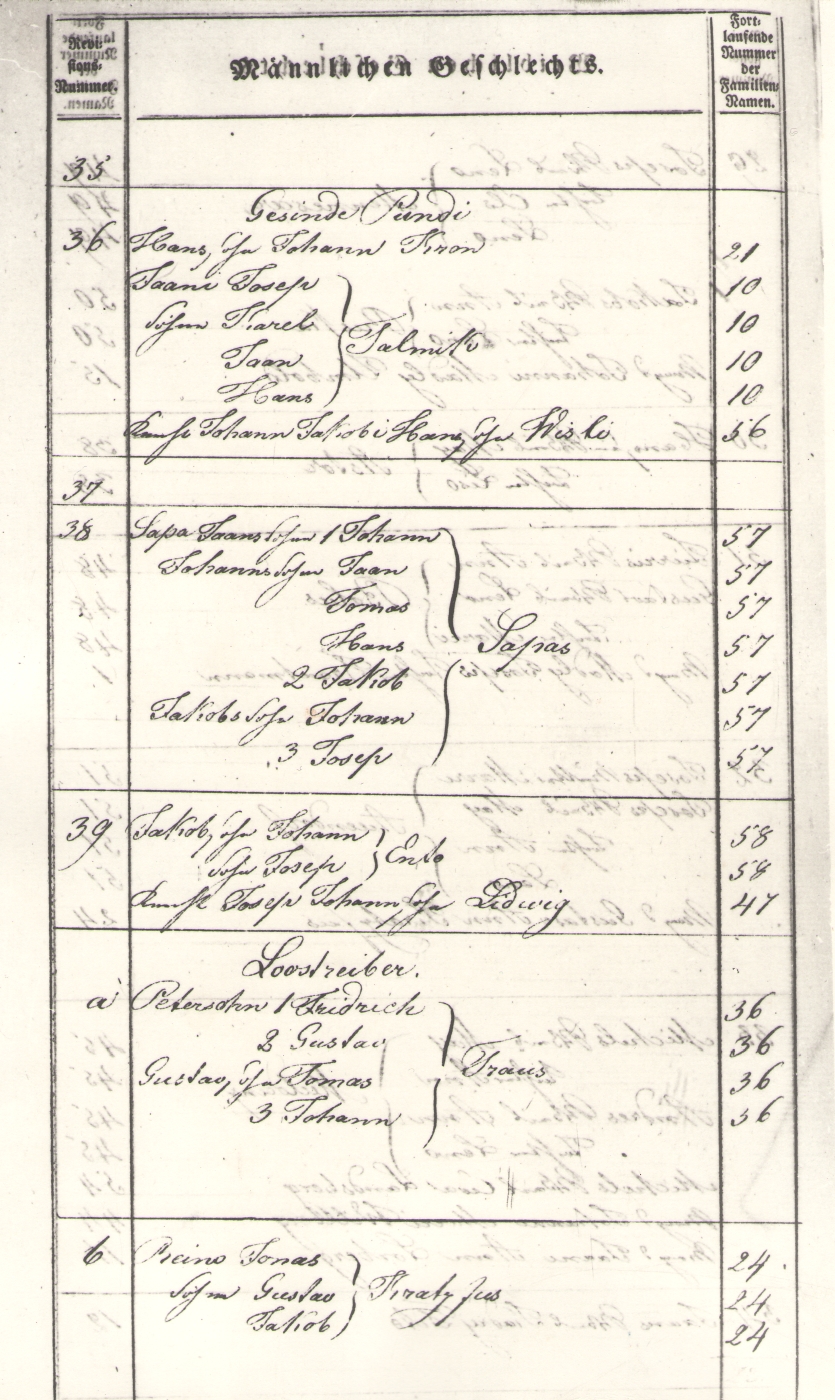 Revi-
sions-
Nummer.
Männlichen Geschlechts.
Fort-
laufende
Nummer
der
Familien-
Namen.
35
Gesinde Pundi
36 Hans, Sohn Johann Kron 21
Jaani Josep 10
Söhne Karel Talmik 10
Jaan 10
Hans 10
Johann Jakobi Hans, Sohn Wisli 56
37
38 Sapa Jaans Söhne 1 Johann 57
Johanns Söhne Jaan 57
Tomas 57
Hans Sapas 57
2 Jakob 57
Jakobs Sohn Johann 57
3 Josep 57
39 Jakob, Sohn Johann 58
Sohn Josep Ento 58
Josep Johann, Sohn Ludwig 47
Loostreiber.
a Petersohn 1 Fridrich 36
2 Gustav 36
Gustav, Sohn Tomas Traus 36
3 Johann 36
b Reino Jonas 24
Söhne Gustav 24
Jakob 24